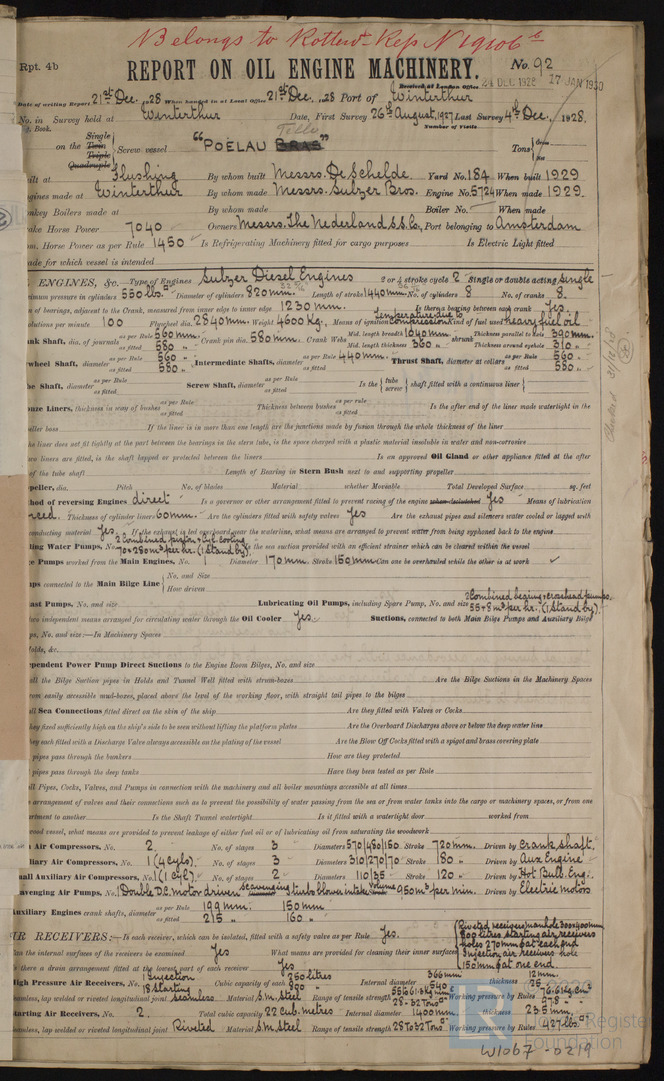 Belongs to Rotterd. Rep No 19106 b
Rpt. 4b
REPORT ON OIL ENGINE MACHINERY.
No. 92
Received at London Office 24 DEC 1928 17 JAN 1930
Date of writing Report 21st Dec. 28 When handed in at Local Office 21st Dec. 28 Port of Winterthur
No. in Survey held at Winterthur Date, First Survey 26th August, 1927 Last Survey 4th Dec. 1928.
Book. Number of Visits
Single
on the Twin Triple Quadruple Screw vessel "POELAU BRAS" Tello Tons Gross Net
built at Flushing By whom built Messrs. De Schelde. Yard No. 184 When built 1929
Engines made at Winterthur By whom made Messrs. Sulzer Bros. Engine No. 5724 When made 1929.
Donkey Boilers made at By whom made Boiler No. When made
Brake Horse Power 7040 Owners Messrs. The Nederland S.S.Co. Port belonging to Amsterdam
Nom. Horse Power as per Rule 1450 Is Refrigerating Machinery fitted for cargo purposes Is Electric Light fitted
Trade for which vessel is intended
ENGINES, &c. Type of Engines Sulzer Diesel Engines 2 or 4 stroke cycle 2 Single or double acting Single
Maximum pressure in cylinders 550 lbs. Diameter of cylinders 820 mm. Length of stroke 1440 mm. No. of cylinders 8 No. of cranks 8.
Span of bearings, adjacent to the Crank, measured from inner edge to inner edge 1230 mm. Is there a bearing between each crank Yes.
Revolutions per minute 100 Flywheel dia. 2840 mm. Weight 4600 Kg. Means of ignition Temperature due to compression Kind of fuel used heavy fuel oil
Crank Shaft, dia. of journals as per Rule 560 mm. as fitted 580 Crank pin dia. 580 mm. Crank Webs Mid. length breadth 1040 mm Mid. length thickness 360 shrunk Thickness parallel to axis 390 mm. Thickness around eyehole 310
Flywheel Shafts, diameter as per Rule 560 as fitted 580 Intermediate Shafts, diameter as per Rule 440 mm. as fitted Thrust Shaft, diameter at collars as per Rule 560 as fitted 580
Tube Shaft, diameter as per Rule as fitted Screw Shaft, diameter as per Rule as fitted Is the tube screw shaft fitted with a continuous liner
Bronze Liners, thickness in way of bushes as per Rule as fitted Thickness between bushes as per rule as fitted Is the after end of the liner made watertight in the
propeller boss If the liner is in more than one length are the junctions made by fusion through the whole thickness of the liner
If the liner does not fit tightly at the part between the bearings in the stern tube, is the space charged with a plastic material insoluble in water and non-corrosive
If two liners are fitted, is the shaft lapped or protected between the liners Is an approved Oil Gland or other appliance fitted at the after
end of the tube shaft Length of Bearing in Stern Bush next to and supporting propeller
Propeller, dia. Pitch No. of blades Material whether Moveable Total Developed Surface sq. feet
Method of reversing Engines direct Is a governor or other arrangement fitted to prevent racing of the engine when declutched Yes Means of lubrication
forced. Thickness of cylinder liners 60 mm. Are the cylinders fitted with safety valves Yes Are the exhaust pipes and silencers water cooled or lagged with
non-conducting material Yes If the exhaust is led overboard near the waterline, what means are arranged to prevent water from being syphoned back to the engine
Cooling Water Pumps, No. 2 Combined piston & Cyl. cooling 70 x 280 m³ per hr. (1 Stand by). Is the sea suction provided with an efficient strainer which can be cleared within the vessel
Bilge Pumps worked from the Main Engines, No. 1 Diameter 170 mm. Stroke 150 mm. Can one be overhauled while the other is at work
Pumps connected to the Main Bilge Line No. and Size How driven
Ballast Pumps, No. and size Lubricating Oil Pumps, including Spare Pump, No. and size 2 Combined bearing & crosshead pumps. 55+8 m³ per hr. (1 Stand by).
Are two independent means arranged for circulating water through the Oil Cooler Yes. Suctions, connected to both Main Bilge Pumps and Auxiliary Bilge
Pumps, No. and size:—In Machinery Spaces
Holds, &c.
Independent Power Pump Direct Suctions to the Engine Room Bilges, No. and size
Are all the Bilge Suction pipes in Holds and Tunnel Well fitted with strum-boxes Are the Bilge Suctions in the Machinery Spaces
from easily accessible mud-boxes, placed above the level of the working floor, with straight tail pipes to the bilges
Are all Sea Connections fitted direct on the skin of the ship Are they fitted with Valves or Cocks
Are they fixed sufficiently high on the ship's side to be seen without lifting the platform plates Are the Overboard Discharges above or below the deep water line
Are they each fitted with a Discharge Valve always accessible on the plating of the vessel Are the Blow Off Cocks fitted with a spigot and brass covering plate
pipes pass through the bunkers How are they protected
pipes pass through the deep tanks Have they been tested as per Rule
Are all Pipes, Cocks, Valves, and Pumps in connection with the machinery and all boiler mountings accessible at all times
arrangement of valves and their connections such as to prevent the possibility of water passing from the sea or from water tanks into the cargo or machinery spaces, or from one
compartment to another Is the Shaft Tunnel watertight Is it fitted with a watertight door worked from
wood vessel, what means are provided to prevent leakage of either fuel oil or of lubricating oil from saturating the woodwork
Main Air Compressors, No. 2. No. of stages 3 Diameters 570/480/150 Stroke 720 mm. Driven by Crank shaft.
Auxiliary Air Compressors, No. 1 (4 cyls). No. of stages 3 Diameters 310/270/70 Stroke 180 Driven by Aux Engine
Small Auxiliary Air Compressors, No. 1 (1 cyl). No. of stages 2 Diameters 110/35 Stroke 120 Driven by Hot Bulb. Eng.
Scavenging Air Pumps, No. 1 Double D.C. motor driven Scavenging turbo blower intake Volume 950 m³ per min. Driven by Electric motors
Auxiliary Engines crank shafts, diameter as per Rule 199 mm. 150 mm as fitted 215 160
AIR RECEIVERS:—Is each receiver, which can be isolated, fitted with a safety valve as per Rule Yes. Riveted receivers manhole 300x400mm
800 litres starting air receivers holes 270 mm ø at each end
Can the internal surfaces of the receivers be examined Yes What means are provided for cleaning their inner surfaces Injection air receivers hole 150 mm ø at one end
Is there a drain arrangement fitted at the lowest part of each receiver Yes
High Pressure Air Receivers, No. 1 Injection 18 Starting Cubic capacity of each 250 litres 800 Internal diameter 366 mm 540 thickness 12 mm. 25
Seamless, lap welded or riveted longitudinal joint Seamless Material S.M. Steel Range of tensile strength 28-32 Tons Working pressure by Rules 76.6 Kg/cm² 978
Starting Air Receivers, No. 2. Total cubic capacity 22 Cub. metres Internal diameter 1400 mm. thickness 23.5 mm.
Seamless, lap welded or riveted longitudinal joint Riveted Material S.M. Steel Range of tensile strength 28 to 32 Tons Working pressure by Rules 427 lbs
Lloyd's Register Foundation
W1067-0219